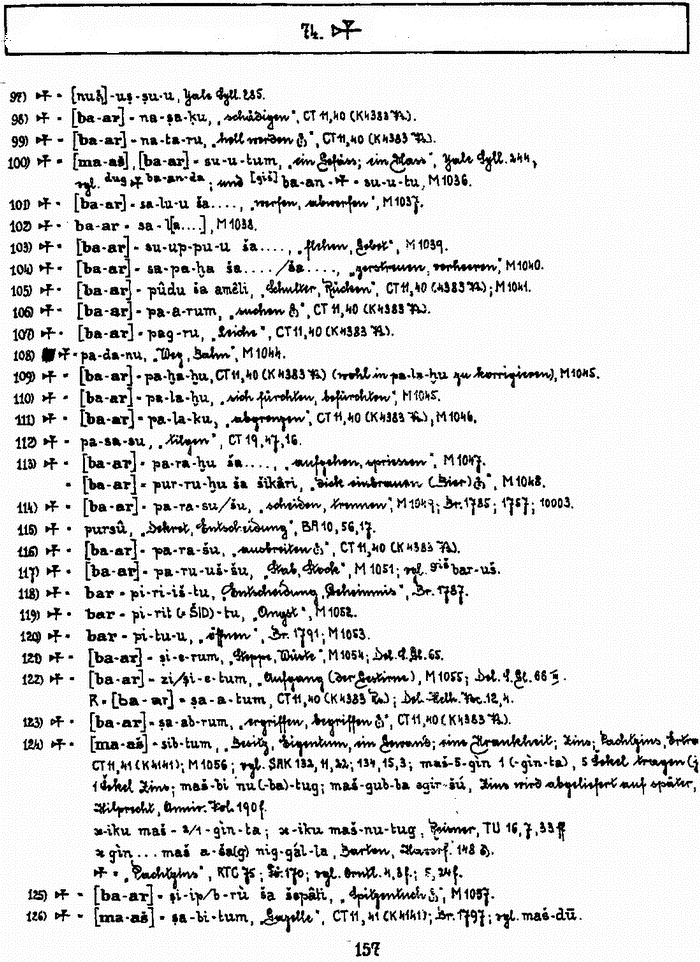 74. 𒈦
97) 𒈦 = [nuḫ]-uṣ-ṣu-u, Yale Syll. 235.
98) 𒈦 = [ba-ar] = na-sa-ku, „schädigen", CT 11,40 (K4383
99) 𒈦 = [ba-ar] = na-ta-ru, „hell werden", CT 11,40 (K4383
100) 𒈦 = [ma-aš], [ba-ar] = su-u-tum, „ein Gefäss; ein Mass", Yale Syll. 244,
vgl. dug 𒈦 ba-an-da; und [giš] ba-an-𒈦 = su-u-tu, M 1036.
101) 𒈦 = [ba-ar] = sa-lu-u ša...., „werfen, abwerfen", M 1037.
102) 𒈦 = ba-ar = sa-l[a....], M 1038.
103) 𒈦 = [ba-ar] = su-up-pu-u ša...., „flehen, Gebet", M 1039.
104) 𒈦 = [ba-ar] = sa-pa-ḫa ša..../ša...., „zerstreuen, verheeren", M 1040.
105) 𒈦 = [ba-ar] = pûdu ša amêli, „Schulter, Rücken", CT 11,40 (4383 ); M 1041.
106) 𒈦 = [ba-ar] = pa-a-rum, „suchen", CT 11,40 (K4383
107) 𒈦 = [ba-ar] = pag-ru, „Leiche", CT 11,40 (K4383
108) 𒈦 = pa-da-nu, „Weg, Bahn", M 1044.
109) 𒈦 = [ba-ar] = pa-ḫa-ḫu, CT 11,40 (K4383 ) (wohl in pa-la-ḫu zu korrigieren), M 1045.
110) 𒈦 = [ba-ar] = pa-la-ḫu, „sich fürchten, befürchten", M 1045.
111) 𒈦 = [ba-ar] = pa-la-ku, „abgrenzen", CT 11,40 (K4383 ), M 1046.
112) 𒈦 = pa-sa-su, „tilgen", CT 19,47,16.
113) 𒈦 = [ba-ar] = pa-ra-ḫu ša...., „aufgehen, spriessen", M 1047.
= [ba-ar] = pur-ru-ḫu ša šikâri, „dick einbrauen (Bier)", M 1048.
114) 𒈦 = [ba-ar] = pa-ra-su/šu, „scheiden, trennen", M 1049; Br. 1785; 1757; 10003.
115) 𒈦 = pursû, „Dekret, Entscheidung", BA 10,56,17.
116) 𒈦 = [ba-ar] = pa-ra-šu, „ausbreiten", CT 11,40 (K4383
117) 𒈦 = [ba-ar] = pa-ru-uš-šu, „Stab, Stock", M 1051; vgl. giš bar-uš.
118) 𒈦 = bar = pi-ri-iš-tu, „Entscheidung, Geheimnis", Br. 1787.
119) 𒈦 = bar = pi-rit (= ŠID)-tu, „Angst", M 1052.
120) 𒈦 = bar = pi-tu-u, „öffnen", Br. 1791; M 1053.
121) 𒈦 = [ba-ar] = ṣi-e-rum, „Steppe, Wüste", M 1054; Del. S. Gl. 65.
122) 𒈦 = [ba-ar] = zi/ṣi-e-tum, „Aufgang (der Gestirne), M 1055; Del. S. Gl. 66
R = [ba-ar] = ṣa-a-tum, CT 11,40 (K4383 ); 12,4.
123) 𒈦 = [ba-ar] = ṣa-ab-rum, „ergriffen, begriffen", CT 11,40 (K4383
124) 𒈦 = [ma-aš] = sib-tum, „Besitz, Eigentum, ein Gewand; eine Krankheit; Zins; Pachtzins,
CT 11,41 (K4141); M 1056; vgl. SAK 132,11,22; 134,15,3; maš-5-gìn 1 (-gìn-ta), 5 Sekel tragen
1 Sekel Zins; maš-bi nu (-ba)-tug; maš-gub-ba egir-šú, Zins wird abgeliefert auf später,
Hilprecht, Anniv. Vol. 190 f.
x-iku maš-2/1-gìn-ta; x-iku maš-nu-tug, Reisner, TU 16,7,33 ff
x gìn... maš a-ša(g) nig-gál-la, Barton, 148
𒈦 = „Pachtzins", RTC 75; 170; vgl.
125) 𒈦 = [ba-ar] = ṣi-ip/b-rù ša šepâti, „Spitzentuch", M 1057.
126) 𒈦 = [ma-aš] = ṣa-bi-tum, „Gazelle", CT 11, 41 (K4141); Br. 1797; vgl. maš-dū.
157